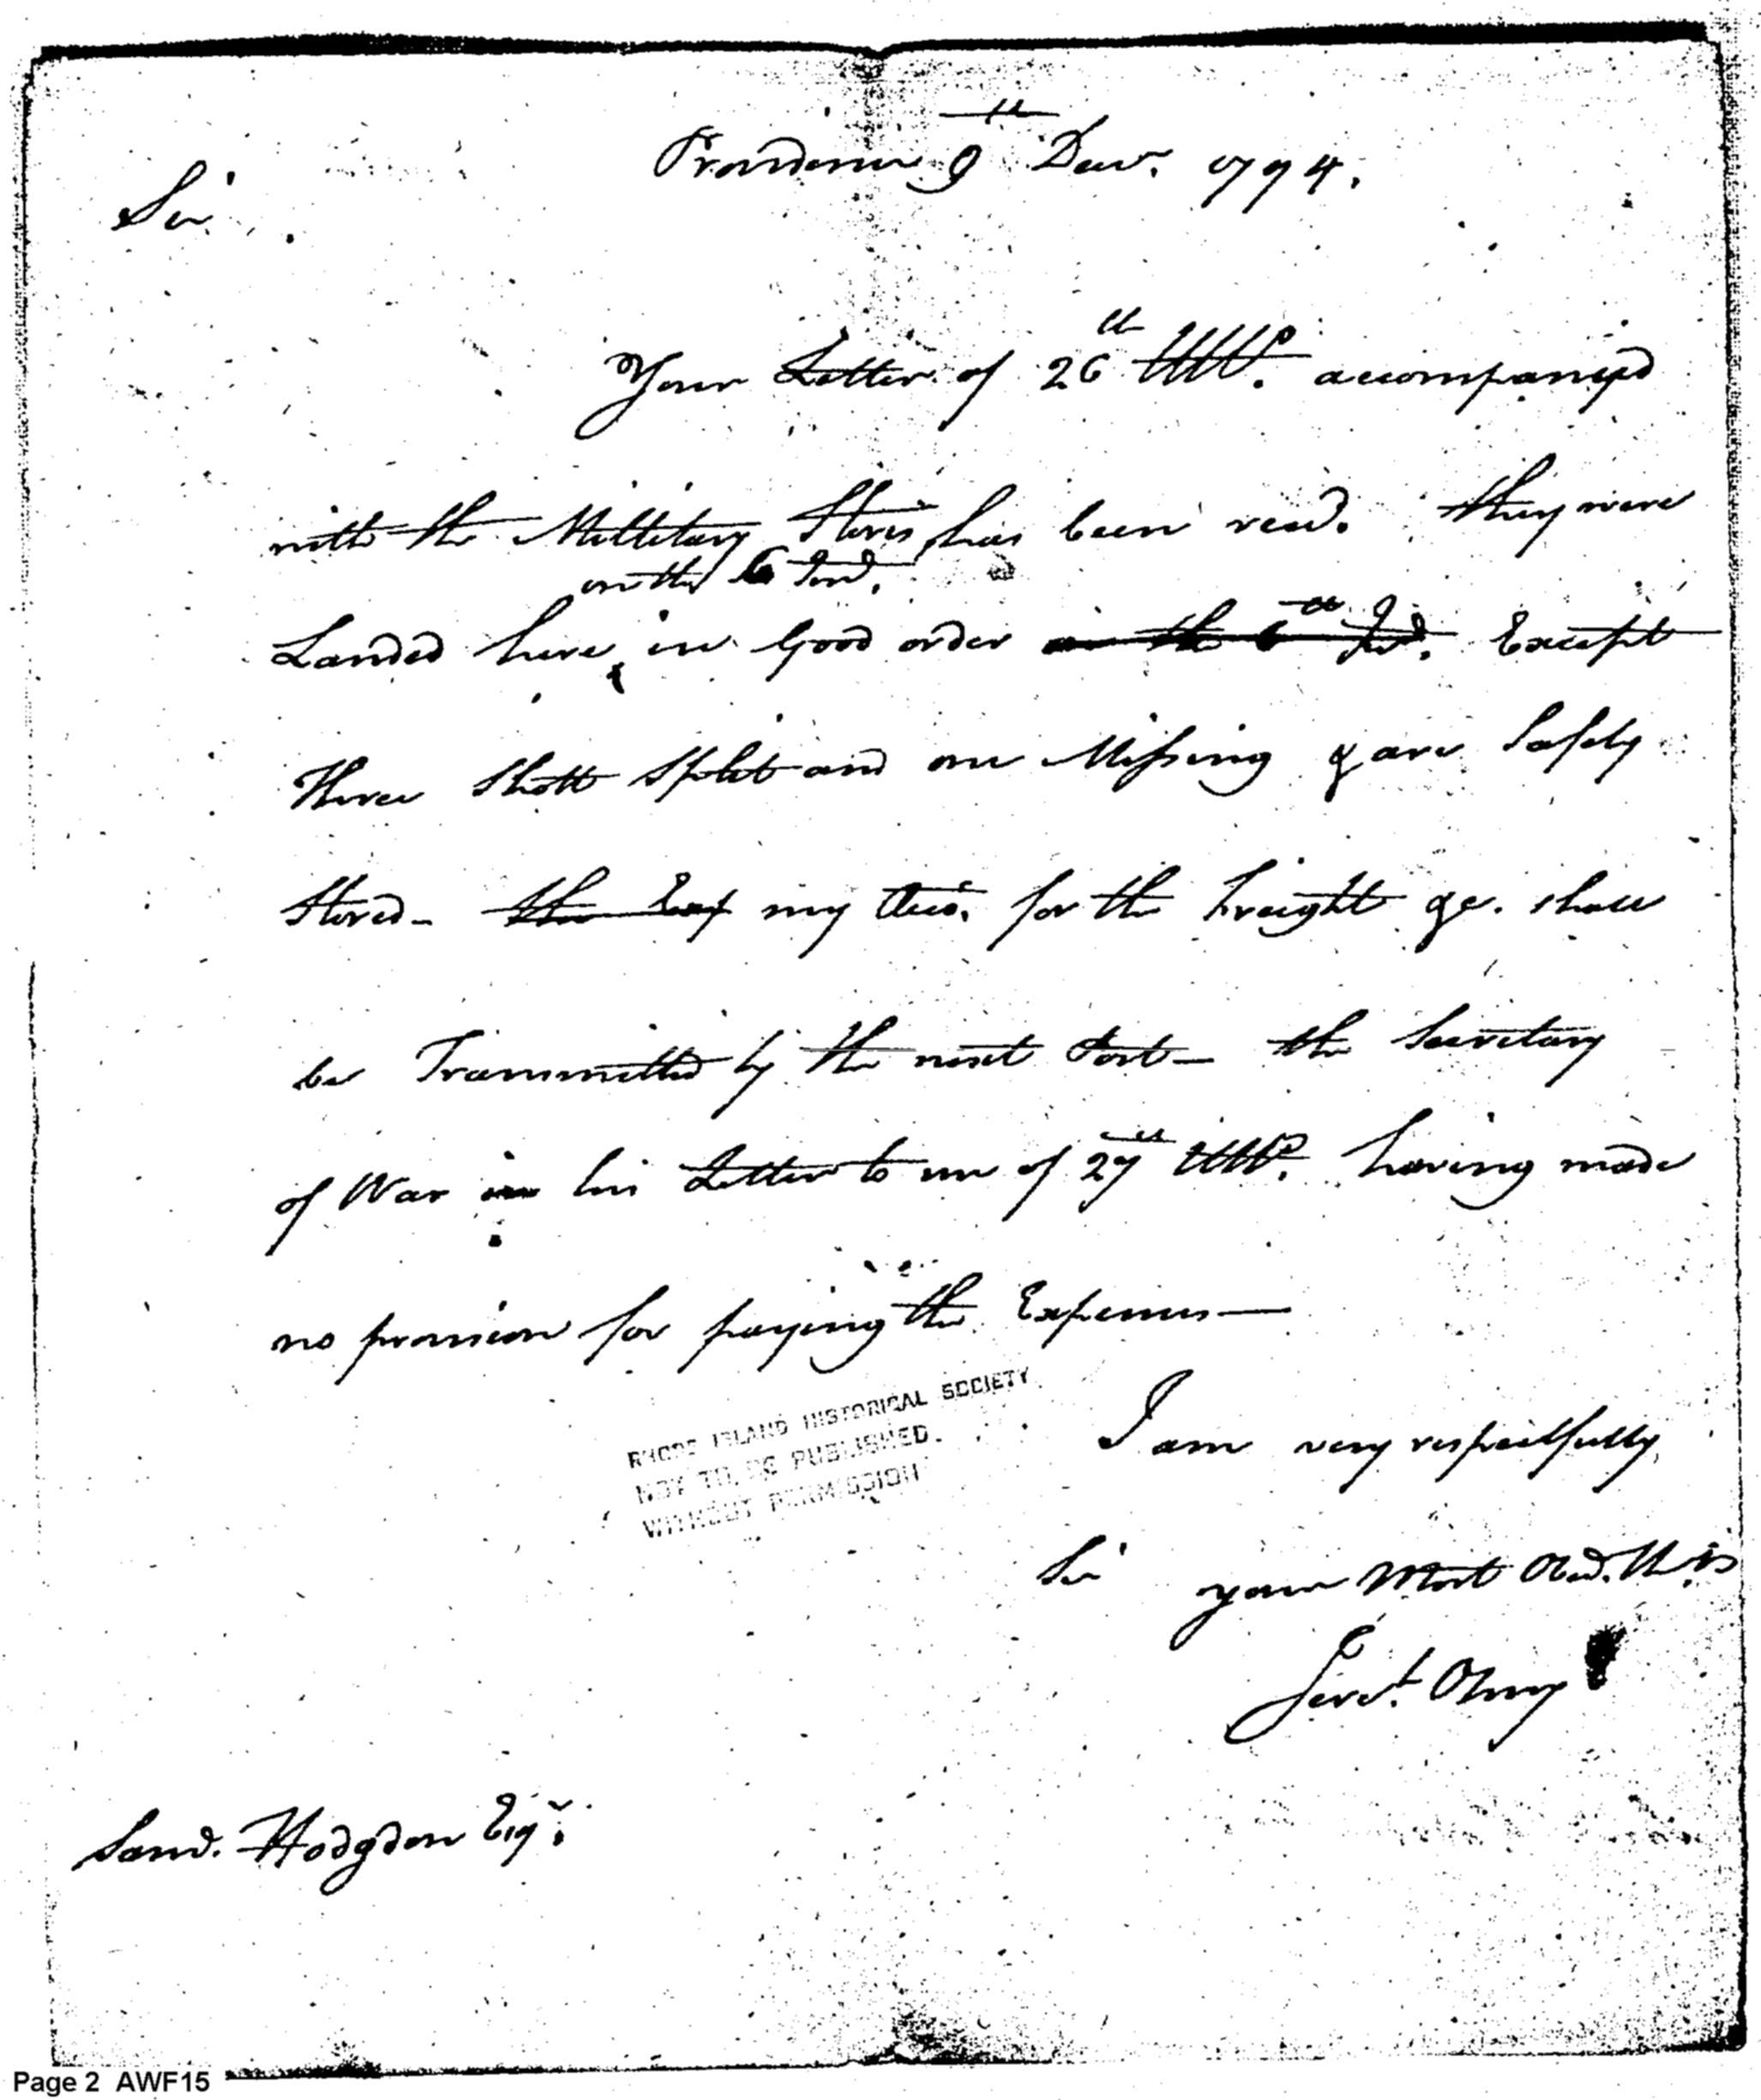 Providence 9th Decr. 1794.
Sir
Your Letter of 26th Ulto. accompanyed
with the Millitary Stores has been recd. they were
on the 6 Inst.
Landed here in Good order on the 6th Inst. Except
Three Shott Split and one Missing & are Safely
Stored - the Exp my Acco. for the freight &c. shall
be Transmitted by the next Post - the Secretary
of War in his Letter to me of 27th Ulto. having made
no provision for paying the Expences —
RHODE ISLAND HISTORICAL SOCIETY
NOT TO BE PUBLISHED
WITHOUT PERMISSION
I am very respectfully
Sir your Most Obd.
Jereh. Olney
Saml. Hodgdon Esqr.
Page 2 AWF15